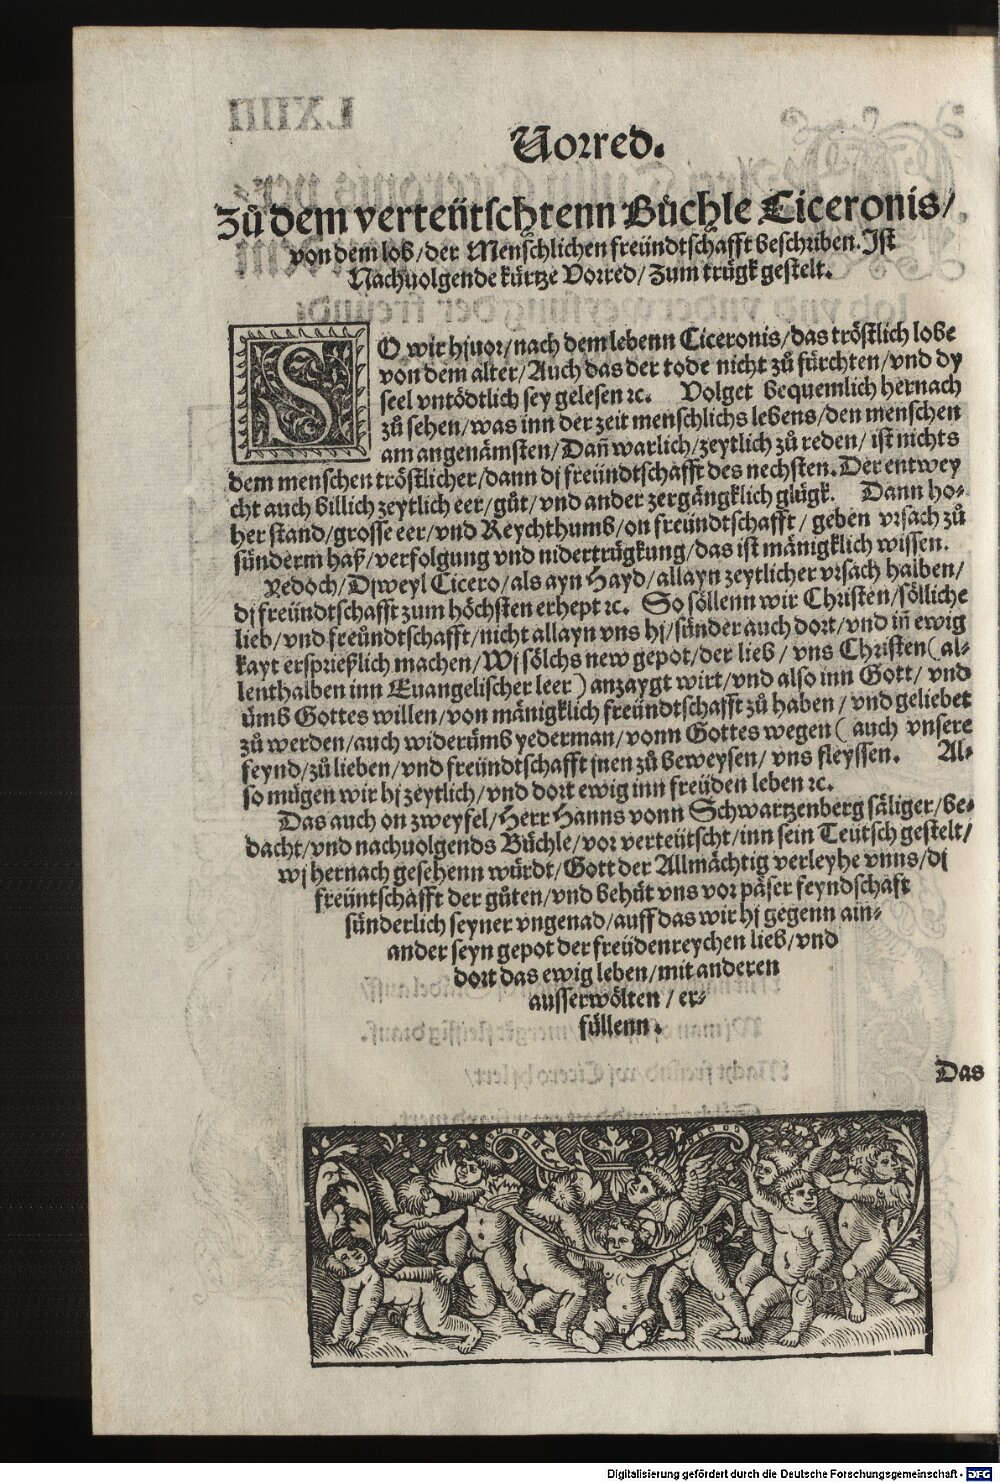 Vorred.
Zů dem verteütschtenn Büchle Ciceronis/
von dem lob/der Menschlichen freündtschafft beschriben. Ist
Nachuolgende kürtze Vorred/Zum trügk gestelt.
SO wir hjuor/nach dem lebenn Ciceronis/das tröstlich lobe
von dem alter/Auch das der tode nicht zů fürchten/vnd dy
seel vntödtlich sey gelesen ꝛc. Volget bequemlich hernach
zů sehen/was inn der zeit menschlichs lebens/den menschen
am angenämsten/Dañ warlich/zeytlich zů reden/ist nichts
dem menschen tröstlicher/dann dj freündtschafft des nechsten. Der entwey
cht auch billich zeytlich eer/gůt/vnd ander zergängklich glügk. Dann ho⸗
her stand/grosse eer/vnd Reychthumb/on freündtschafft/geben vrsach zů
sünderm haß/verfolgung vnd nidertrügkung/das ist mänigklich wissen.
Yedoch/Djweyl Cicero/als ayn Hayd/allayn zeytlicher vrsach halben/
dj freündtschafft zum höchsten erhept ꝛc. So söllenn wir Christen/sölliche
lieb/vnd freündtschafft/nicht allayn vns hj/sünder auch dort/vnd iñ ewig
kayt ersprießlich machen/Wj sölchs new gepot/der lieb/vns Christen(al⸗
lenthalben inn Euangelischer leer)anzaygt wirt/vnd also inn Gott/vnd
ümb Gottes willen/von mänigklich freündtschafft zů haben/vnd geliebet
zů werden/auch widerümb yederman/vonn Gottes wegen(auch vnsere
feynd/zů lieben/vnd freündtschafft jnen zů beweysen/vns fleyssen. Al⸗
so mügen wir hj zeytlich/vnd dort ewig inn freüden leben ꝛc.
Das auch on zweyfel/Herr Hanns vonn Schwartzenberg säliger/be⸗
dacht/vnd nachuolgends Büchle/vor verteütscht/inn sein Teütsch gestelt/
wj hernach gesehenn würdt/Gott der Allmächtig verleyhe vnns/dj
freüntschafft der gůten/vnd behüt vns vor päser feyndschaft
sünderlich seyner vngenad/auff das wir hj gegenn ain⸗
ander seyn gepot der freüdenreychen lieb/vnd
dort das ewig leben/mit anderen
ausserwölten/er⸗
füllenn.
Das
Digitalisierung gefördert durch die Deutsche Forschungsgemeinschaft - DFG